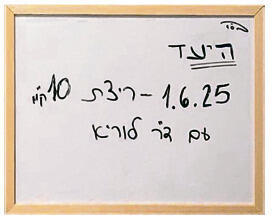 בס"ד
היעד
1.6.25 - ריצת 10 ק"מ
עם ד"ר לוריא